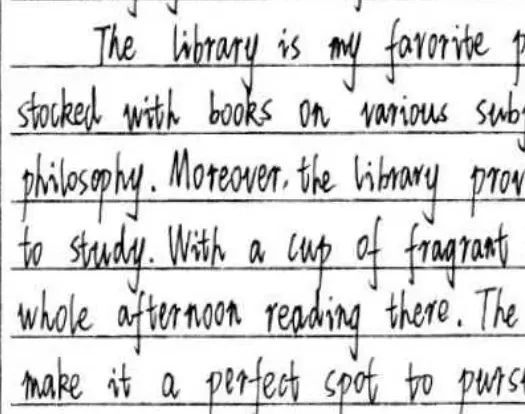 The library is my favorite
stocked with books on various
philosophy. Moreover, the library
to study. With a cup of fragrant
whole afternoon reading there. The
make it a perfect spot to